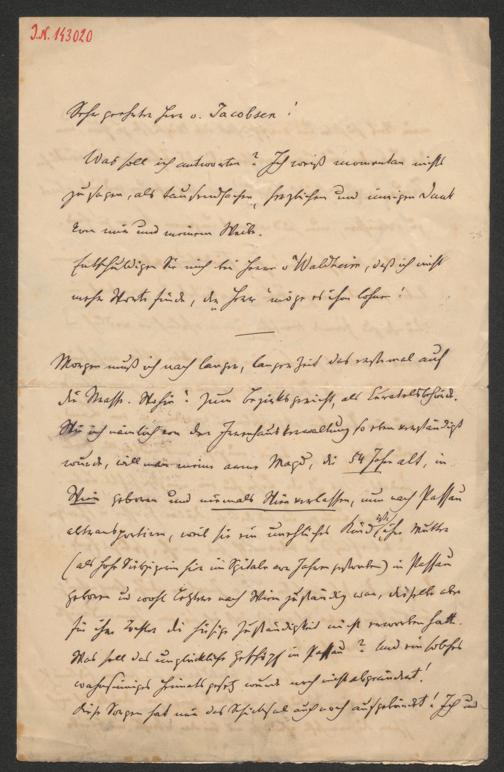 I.N. 143020
Sehr geehrter Herr v. Jacobsen!
Was soll ich antworten? Ich weiß momentan nichts
zu sagen, als tausendfachen, herzlichen und innigen Dank
von mir und meinem Weibe.
Entschuldigen Sie mich bei Herrn v Waldheim, daß ich nicht
mehr Worte finde, der „Herr“ möge es ihm lohnen!
Morgen muß ich nach langer, langer Zeit das erstemal auf
die Wohin? Zum Bezirksgericht, als Curatelsbehörde.
Wie ich nämlich von der Irrenhausverwaltung so eben verständigt
wurde, will man meine arme Magd, die 54 Jahre alt, in
Wien geboren und niemals Wien verlassen, nun nach Passau
abtransportiren, weil sie ein uneheliches Kind ist, ihre Mutter
(als hohe Siebzigerin hier im Spitale vor Jahren gestorben) in Passau
geboren u wohl Letztere nach Wien zuständig war, dieselbe aber
für ihre Tochter die hiesige Zuständigkeit nicht erworben hatte.
Was soll das unglückliche Geschöpf in Passau? Und ein solches
wahnsinniges Heimatsgesetz wurde noch nicht abgeändert!
Diese Sorgen hat mir das Schicksal auch noch aufgebürdet! Ich und